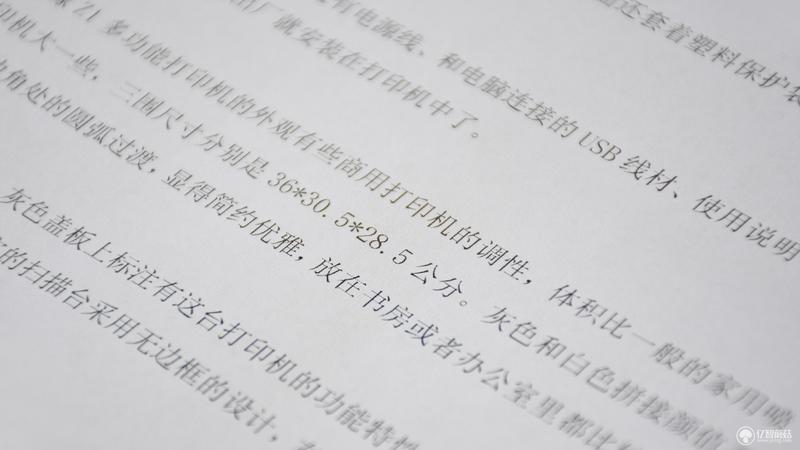 面还套着塑料保护袋
有电源线、和电脑连接的USB线材、使用说明
出厂就安装在打印机中了。
Z1 多功能打印机的外观有些商用打印机的调性,体积比一般的家用喷
印机大一些,三围尺寸分别是 36*30.5*28.5 公分。灰色和白色拼接颜值
边角处的圆弧过渡,显得简约优雅,放在书房或者办公室里都比
灰色盖板上标注有这台打印机的功能特性
的扫描台采用无边框的设计,
亿智蘑菇